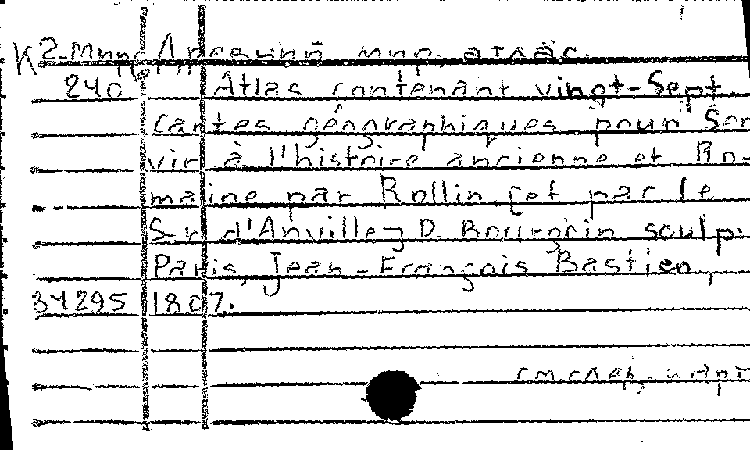 К 2-Мир Древний мир, атлас.
240 Atlas contenant vingt-sept
cartes géographiques pour ser-
vir à l'histoire ancienne et Ro-
maine par Rollin [et par le
Sr d'Anville] D. Bourgoin sculp.
Paris, Jean-François Bastien,
34295 1807.
см. след. карт